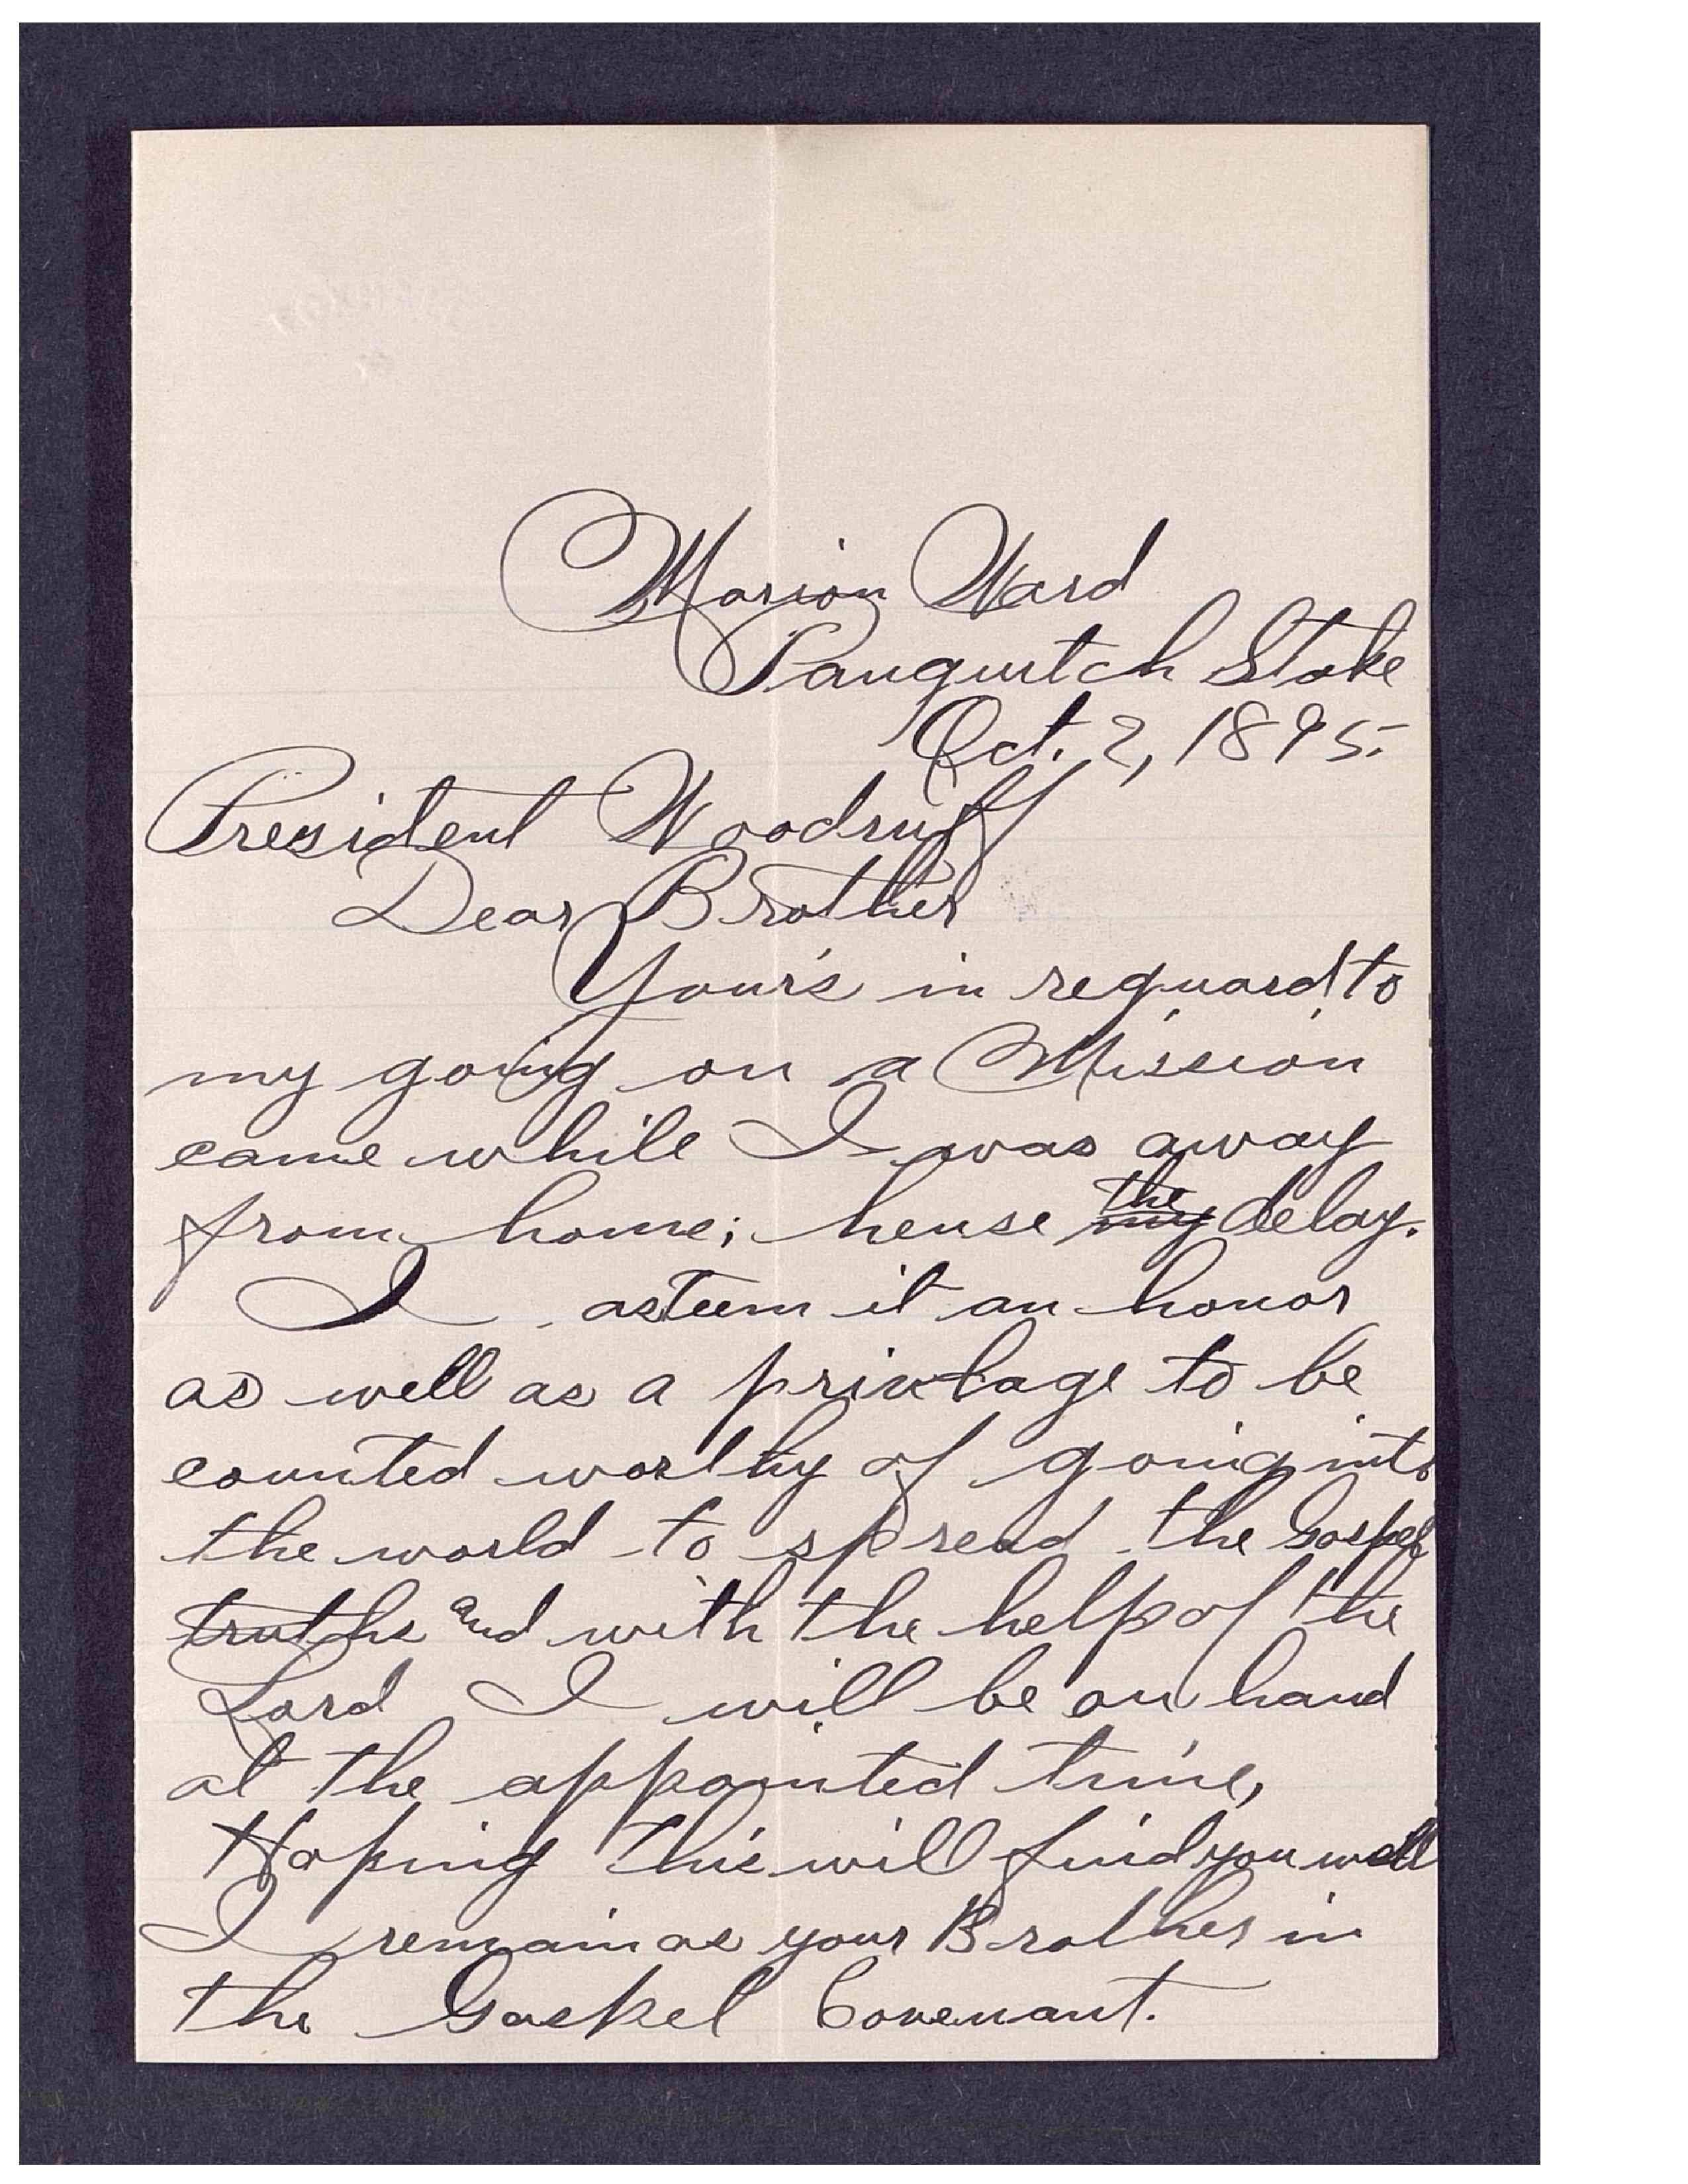 Marion Ward
Panguitch Stake
Oct. 2, 1895.
President Woodruff
Dear Brother
Your's in reguard to
my going on a Mission
came while I was away
from home; hense the my delay.
I asteem it an honor
as well as a privlage to be
counted worthy of going into
the world to spread the Gospel
truths and with the help of the
Lord I will be on hand
at the appointed time,
Hoping this will find you well
I remain as your Brother in
the Gospel Covenant.